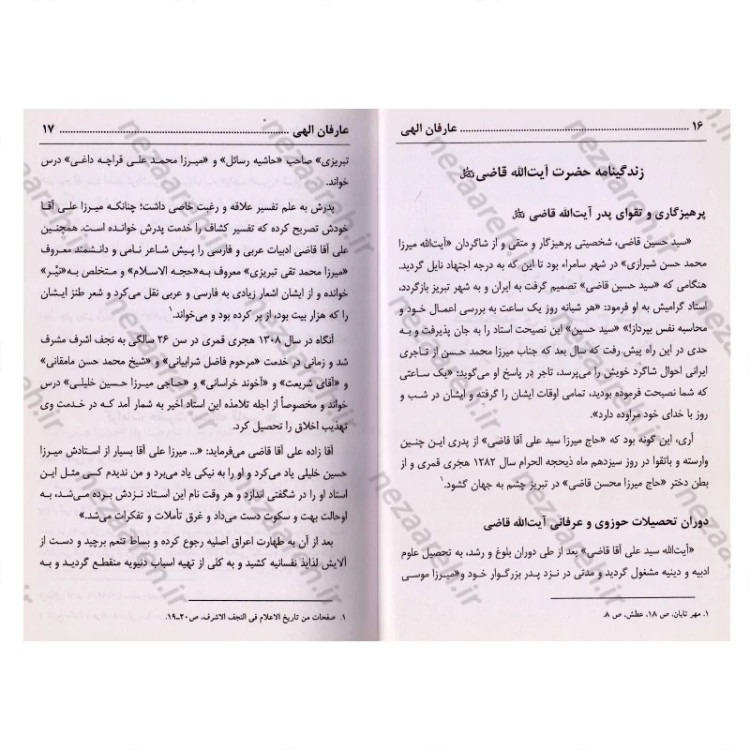 ۱۶ .......... عارفان الهی
زندگینامه حضرت آیت‌الله قاضی
پرهیزگاری و تقوای پدر آیت‌الله قاضی
«سید حسین قاضی، شخصیتی پرهیزگار و متقی و از شاگردان «آیت‌الله میرزا
محمد حسن شیرازی» در شهر سامراء بود تا این که به درجه اجتهاد نایل گردید.
هنگامی که «سید حسین قاضی» تصمیم گرفت به ایران و به شهر تبریز بازگردد،
استاد گرامیش به او فرمود: «هر شبانه روز یک ساعت به بررسی اعمال خود و
محاسبه نفس بپرداز!» «سید حسین» این نصیحت استاد را به جان پذیرفت و به
حدی در این راه پیش رفت که سال بعد که جناب میرزا محمد حسن از تاجری
ایرانی احوال شاگرد خویش را می‌پرسد، تاجر در پاسخ او می‌گوید: «یک ساعتی
که شما نصیحت فرموده بودید، تمامی اوقات ایشان را گرفته و ایشان در شب و
روز با خدای خود مراوده دارد».
آری، این گونه بود که «حاج میرزا سید علی آقا قاضی» از پدری این چنین
وارسته و باتقوا در روز سیزدهم ماه ذیحجه الحرام سال ۱۲۸۲ هجری قمری و از
بطن دختر «حاج میرزا محسن قاضی» در تبریز چشم به جهان گشود.۱
دوران تحصیلات حوزوی و عرفانی آیت‌الله قاضی
«آیت‌الله سید علی آقا قاضی» بعد از طی دوران بلوغ و رشد، به تحصیل علوم
ادبیه و دینیه مشغول گردید و مدتی در نزد پدر بزرگوار خود و«میرزا موسی
۱. مهر تابان، ص ۱۸، عطش، ص ۸.
عارفان الهی .......... ۱۷
تبریزی» صاحب «حاشیه رسائل» و «میرزا محمد علی قراچه داغی» درس
خواند.
پدرش به علم تفسیر علاقه و رغبت خاصی داشت؛ چنانکه میرزا علی آقا
خودش تصریح کرده که تفسیر کشاف را خدمت پدرش خوانده است. همچنین
علی آقا قاضی ادبیات عربی و فارسی را پیش شاعر نامی و دانشمند معروف
«میرزا محمد تقی تبریزی» معروف به«حجه الاسلام» و متخلص به«نیّر»
خوانده و از ایشان اشعار زیادی به فارسی و عربی نقل می‌کرد و شعر طنز ایشان
را که هزار بیت بود، از بر کرده بود و می‌خواند.۱
آنگاه در سال ۱۳۰۸ هجری قمری در سن ۲۶ سالگی به نجف اشرف مشرف
شد و زمانی در خدمت «مرحوم فاضل شرابیانی» و «شیخ محمد حسن مامقانی»
و «آقای شریعت» و «آخوند خراسانی» و «حاجی میرزا حسین خلیلی» درس
خواند و مخصوصاً از اجله تلامذه این استاد اخیر به شمار آمد که در خدمت وی
تهذیب اخلاق را تحصیل کرد.
آقا زاده علی آقا قاضی می‌فرماید: «... میرزا علی آقا بسیار از استادش میرزا
حسین خلیلی یاد می‌کرد و او را به نیکی یاد می‌برد و من ندیدم کسی مثل این
استاد او را در شگفتی اندازد و هر وقت نام این استاد نزدش برده می‌شد، به
اوحالت بهت و سکوت دست می‌داد و غرق تأملات و تفکرات می‌شد.»
بعد از آن به طهارت اعراق اصلیه رجوع کرده و بساط تنعم برچید و دست از
آلایش لذاید نفسانیه کشید و به کلی از تهیه اسباب دنیویه منقطع گردید و به
۱. صفحات من تاریخ الاعلام فی النجف الاشرف، ص۲۰ـ۱۹.
nezaareh.ir
nezaareh.ir
nezaareh.ir
nezaareh.ir
nezaareh.ir
nezaareh.ir